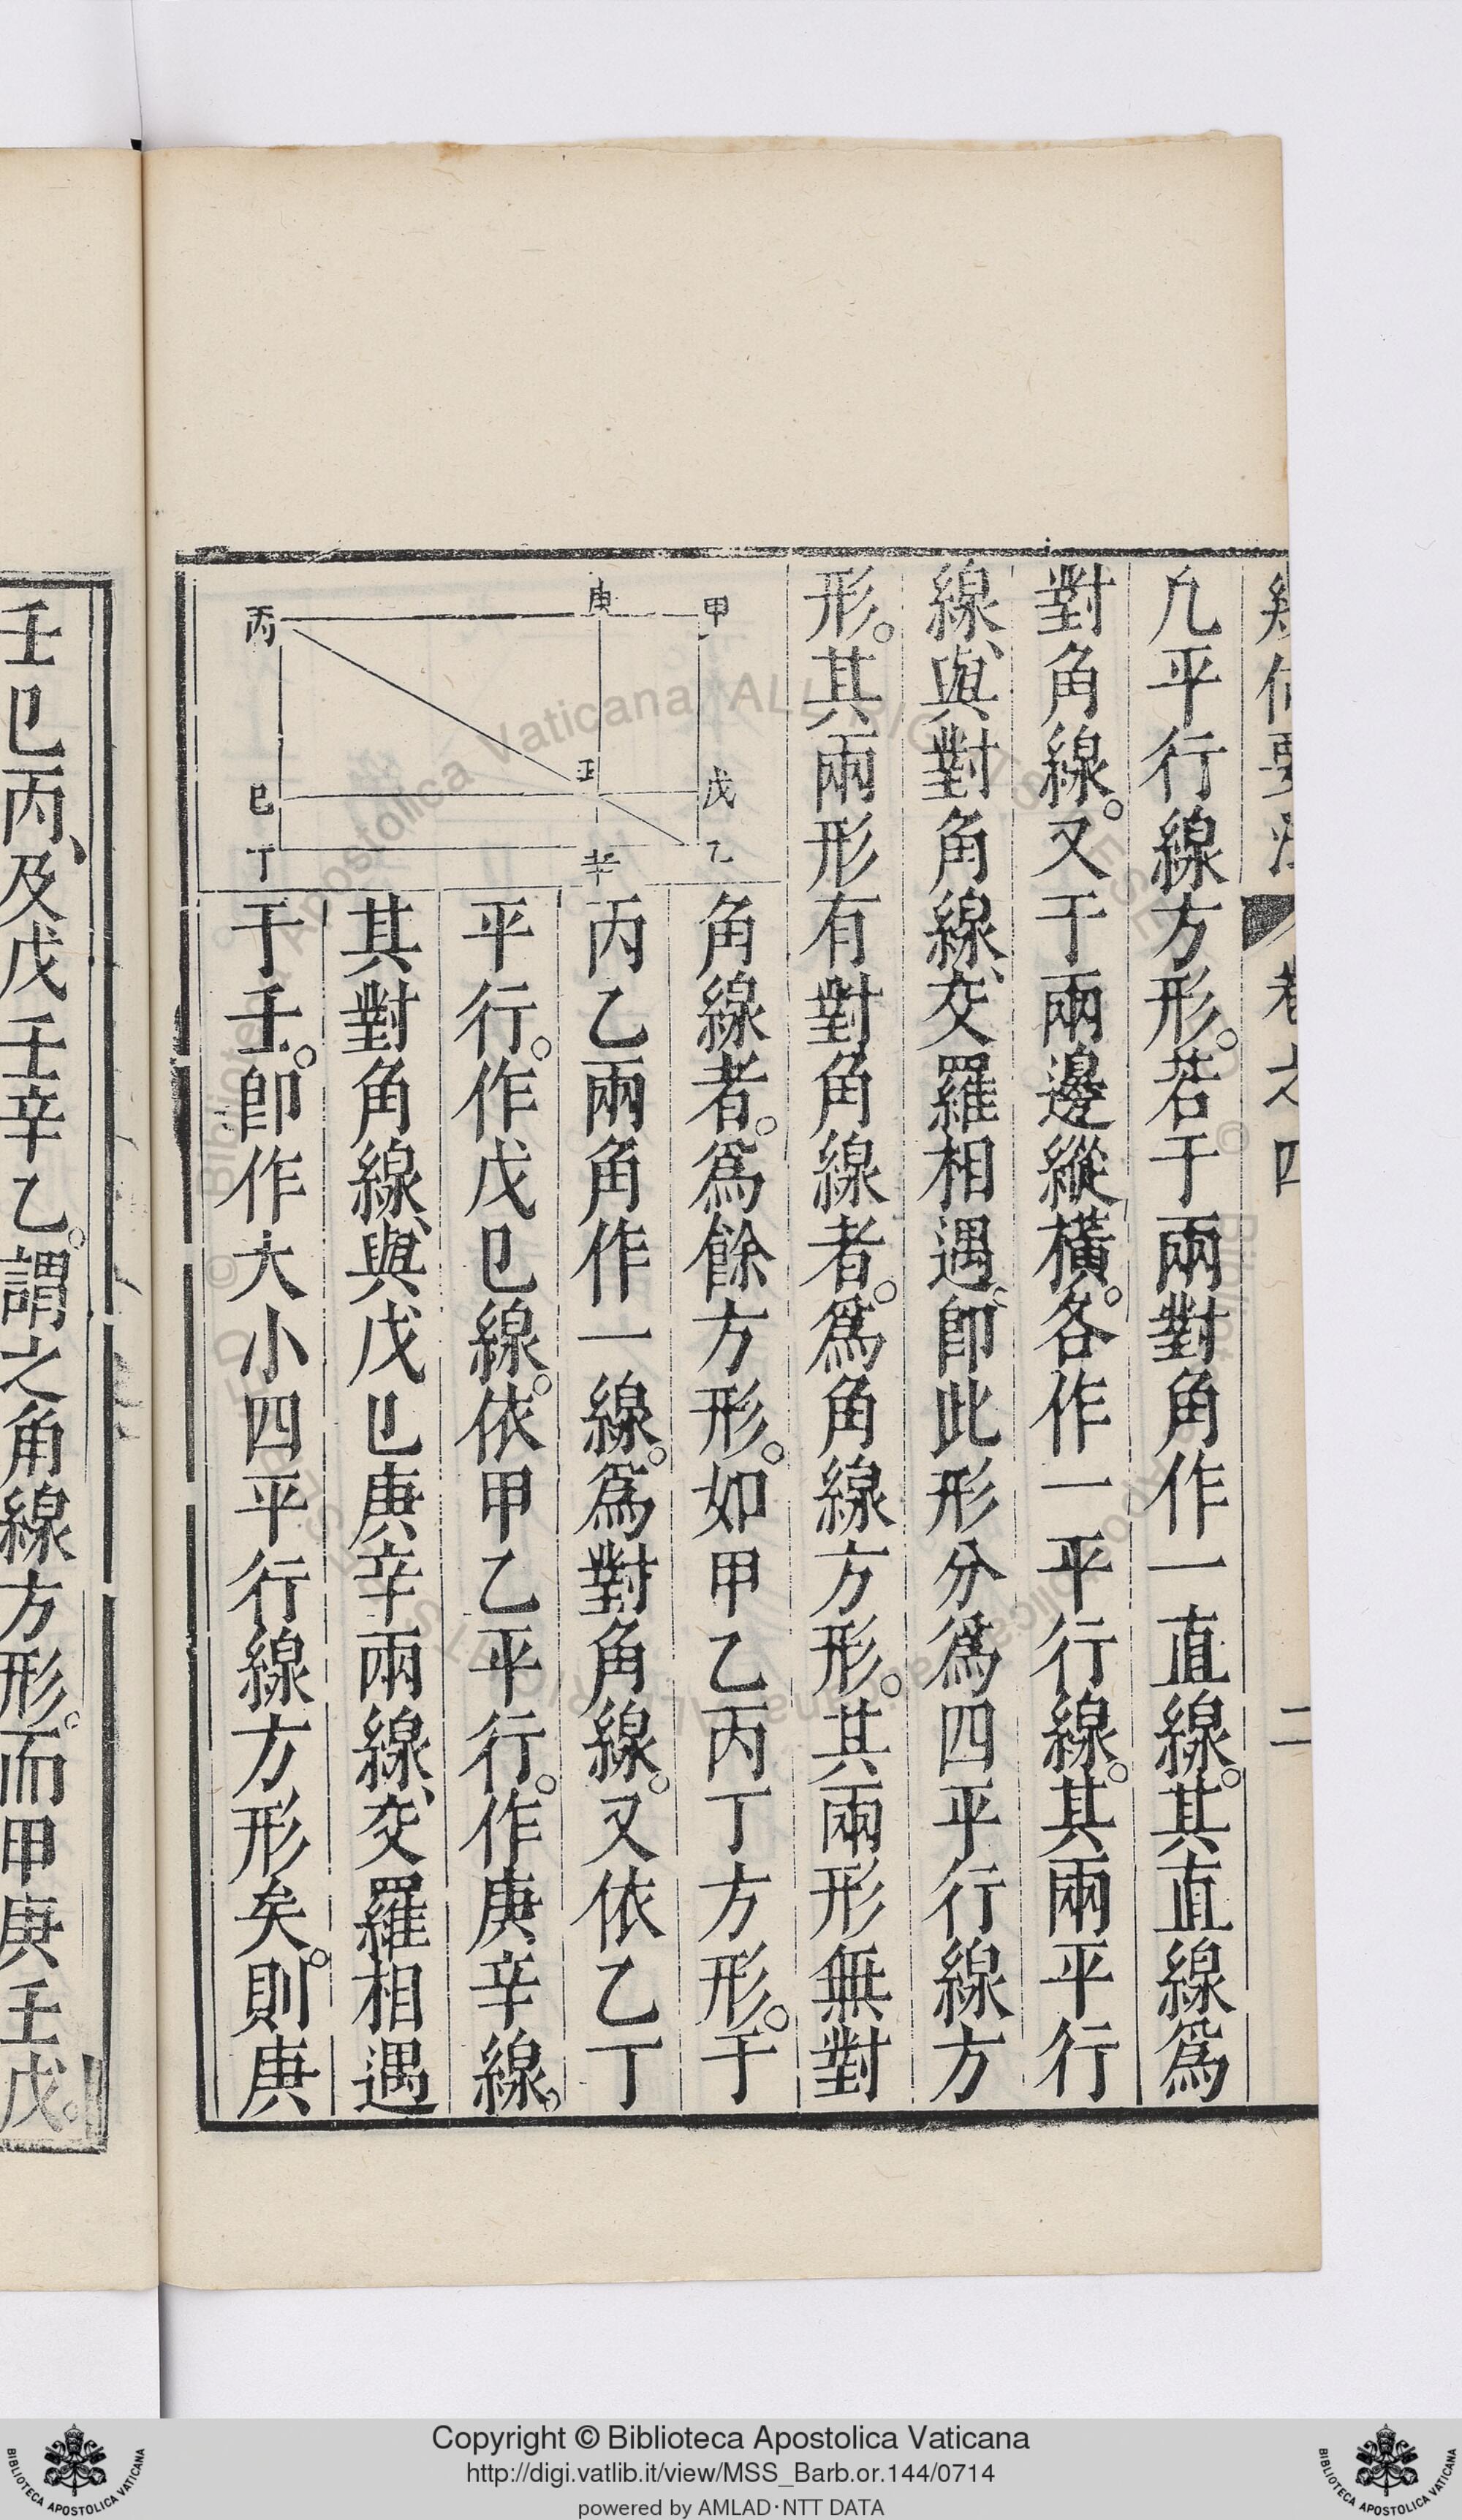 卷之四
二
凢平行線方形。若于兩對角作一直線。其直線爲
對角線。又于兩邊縱橫。各作一平行線。其兩平行
線、與對角線、交羅相遇、卽此形分爲四平行線方
形。其兩形有對角線者。爲角線方形。其兩形無對
角線者。爲餘方形。如甲乙丙丁方形。于
丙乙兩角作一線。爲對角線。又依乙丁
平行。作戊巳線。依甲乙平行。作庚辛線。
其對角線、與戊巳庚辛兩線、交羅相遇
于壬。卽作大小四平行線方形矣。則庚
甲
庚
丙
戊
壬
巳
乙
辛
丁
壬巳丙、及戊壬辛乙。謂之角線方形。而甲庚壬戊。
Copyright © Biblioteca Apostolica Vaticana
http://digi.vatlib.it/view/MSS_Barb.or.144/0714
powered by AMLAD·NTT DATA
BIBLIOTECA APOSTOLICA VATICANA
BIBLIOTECA APOSTOLICA VATICANA